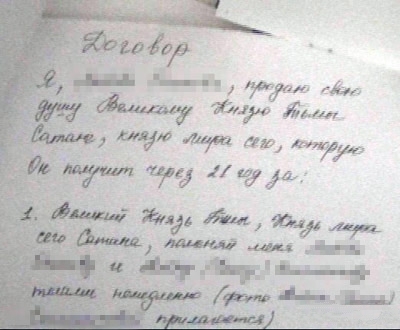 Договор
Я, , продаю свою
душу Великому Князю Тьмы
Сатане, князю мира сего, которую
Он получит через 21 год за:
1. Великий Князь Тьмы, Князь мира
сего Сатана, поменяй меня
и
телами немедленно (фото
прилагается)